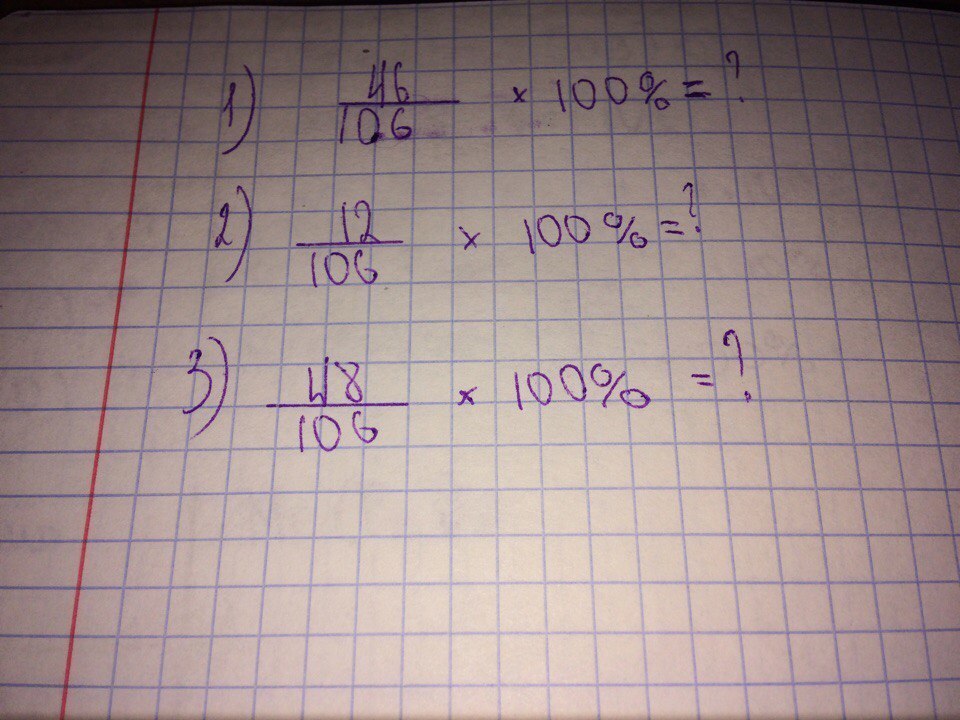 1) 46/106 × 100% = ?
2) 12/106 × 100% = ?
3) 48/106 × 100% = ?